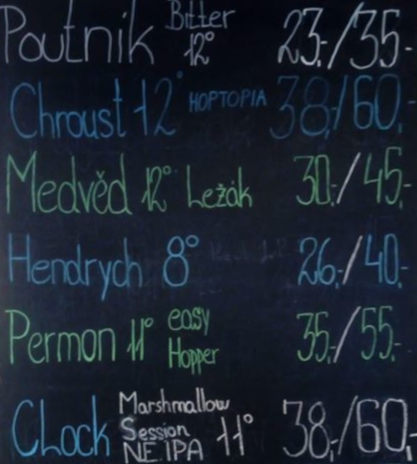 Poutník Bitter 12° 23,-/35,-
Chroust 12° HOPTOPIA 38,-/60,-
Medvěd 12° Ležák 30,-/45,-
Hendrych 8° 26,-/40,-
Permon 11° easy Hopper 35,-/55,-
CLock Marshmallow Session NE IPA 11° 38,-/60,-